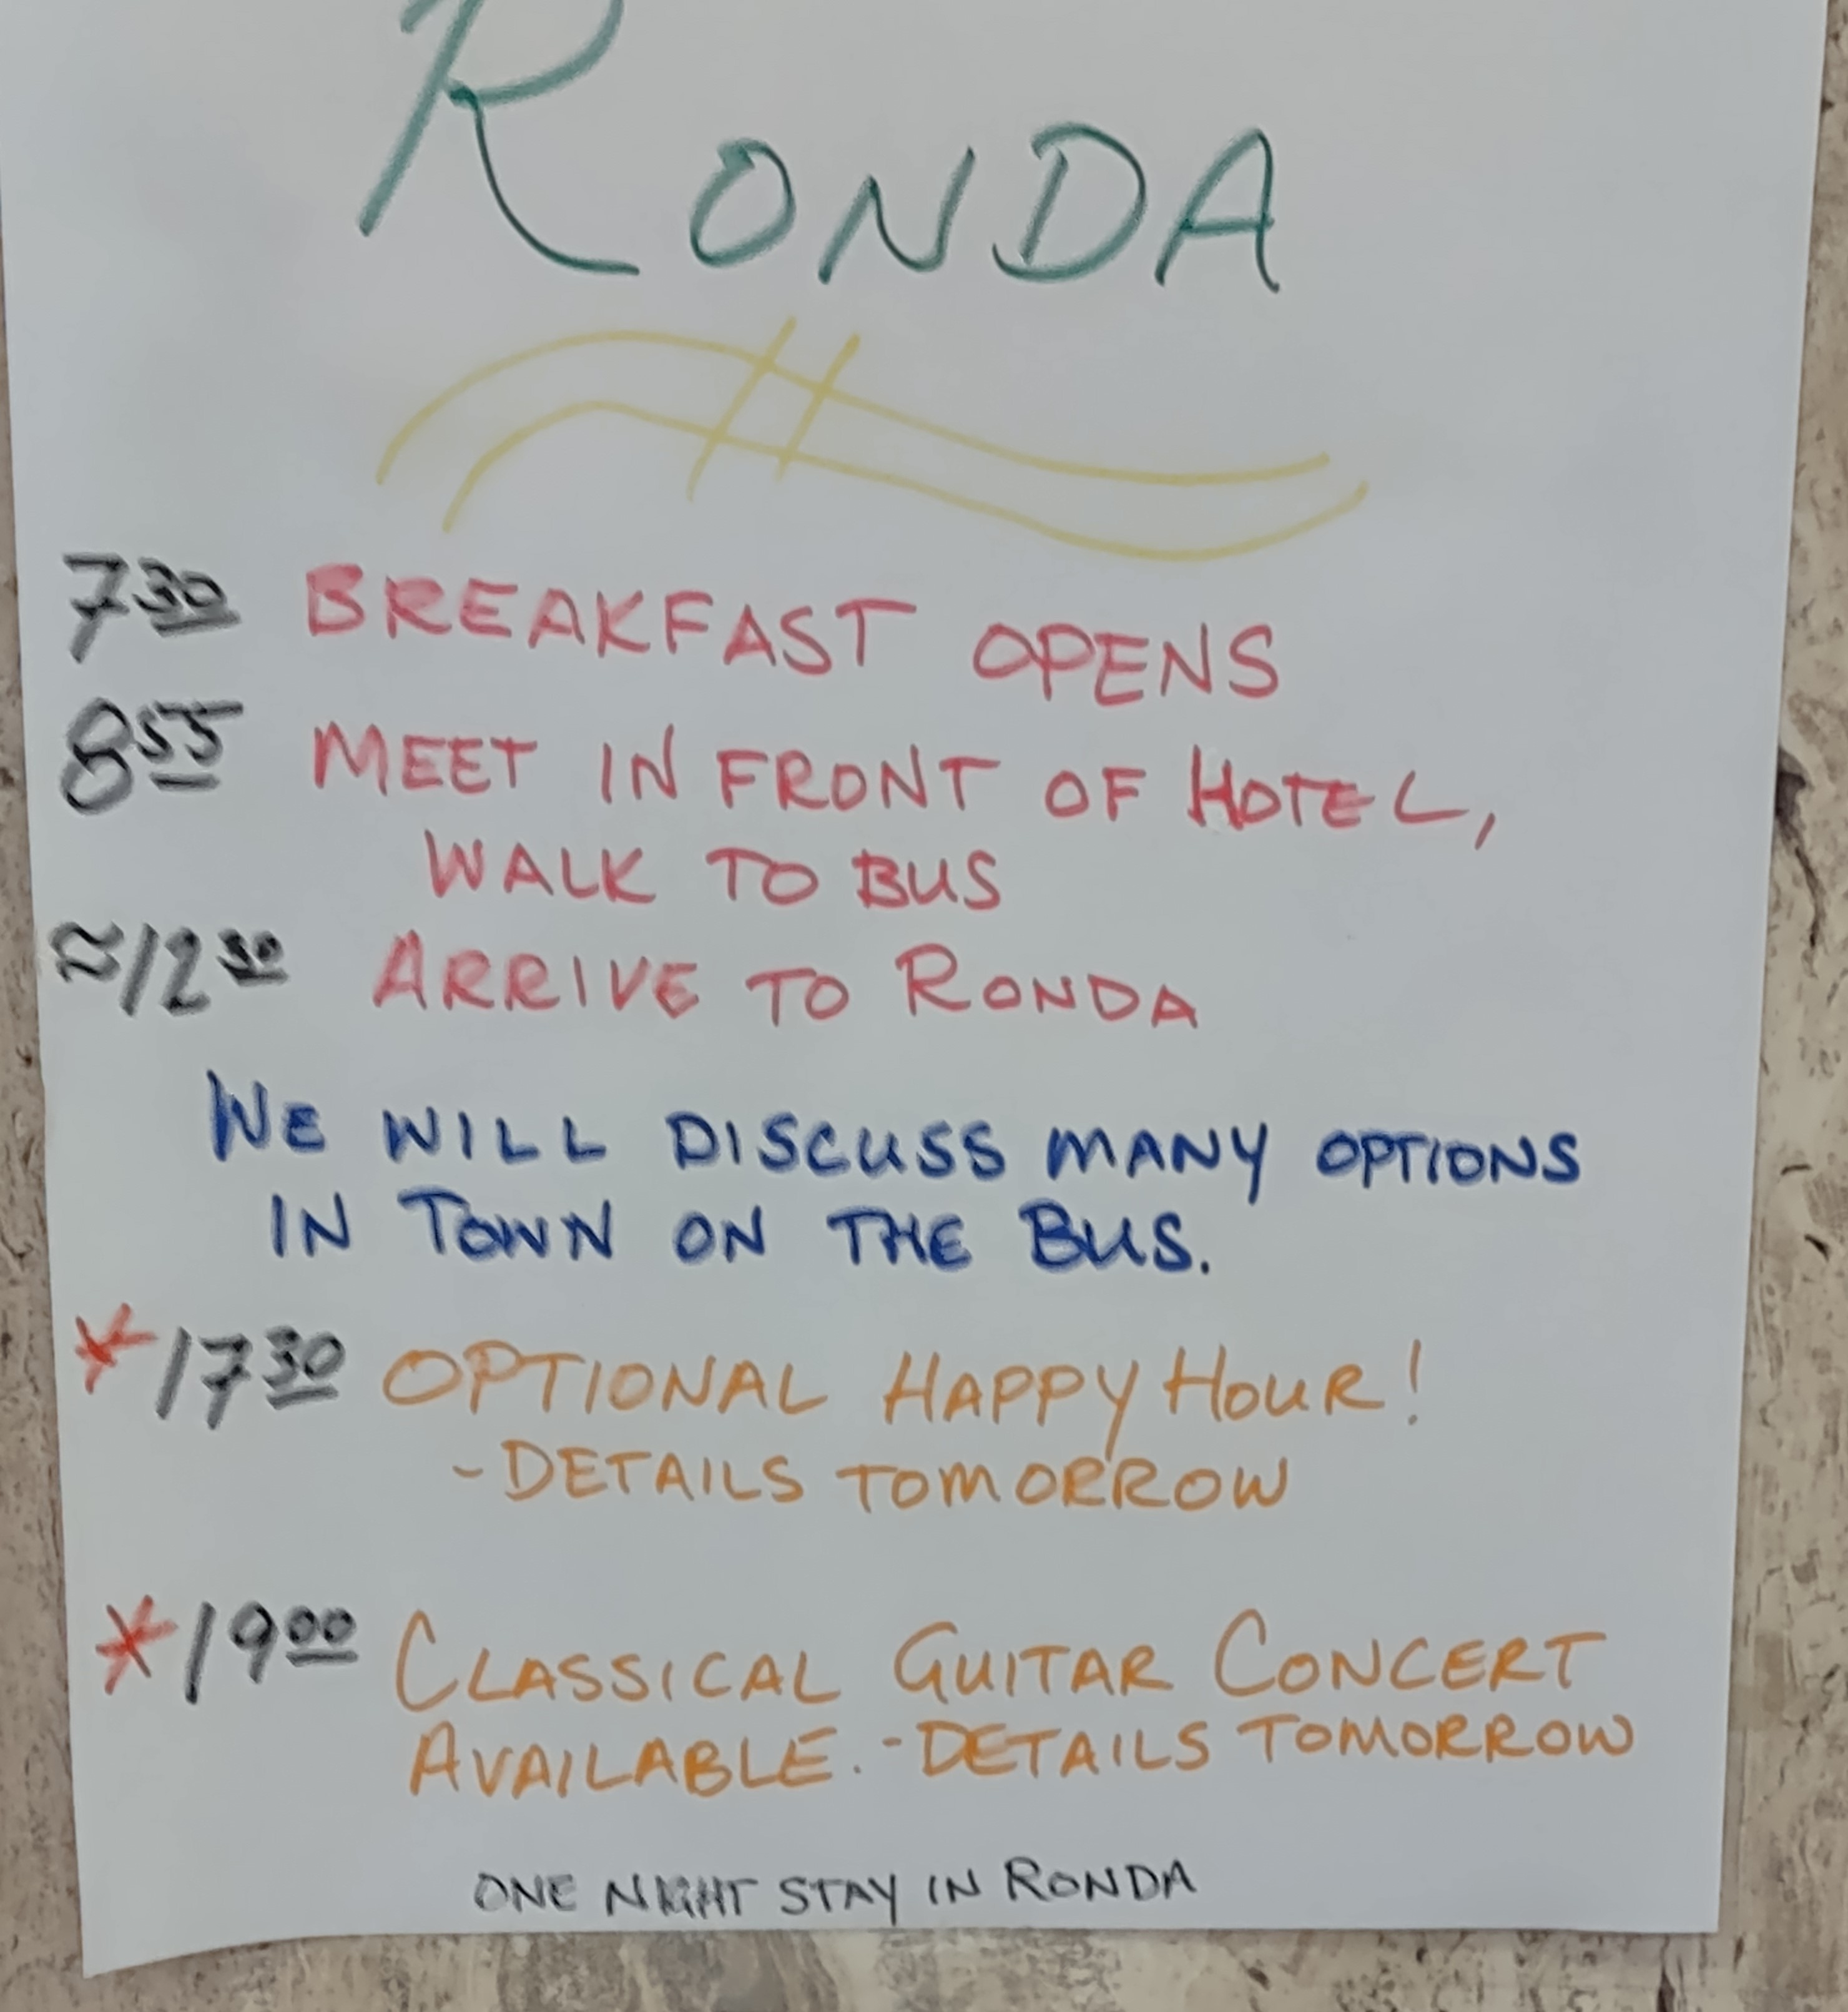 RONDA
7³⁰ BREAKFAST OPENS
8⁵⁵ MEET IN FRONT OF HOTEL,
WALK TO BUS
≈12³⁰ ARRIVE TO RONDA
WE WILL DISCUSS MANY OPTIONS
IN TOWN ON THE BUS.
*17³⁰ OPTIONAL HAPPY HOUR!
-DETAILS TOMORROW
*19⁰⁰ CLASSICAL GUITAR CONCERT
AVAILABLE.-DETAILS TOMORROW
ONE NIGHT STAY IN RONDA